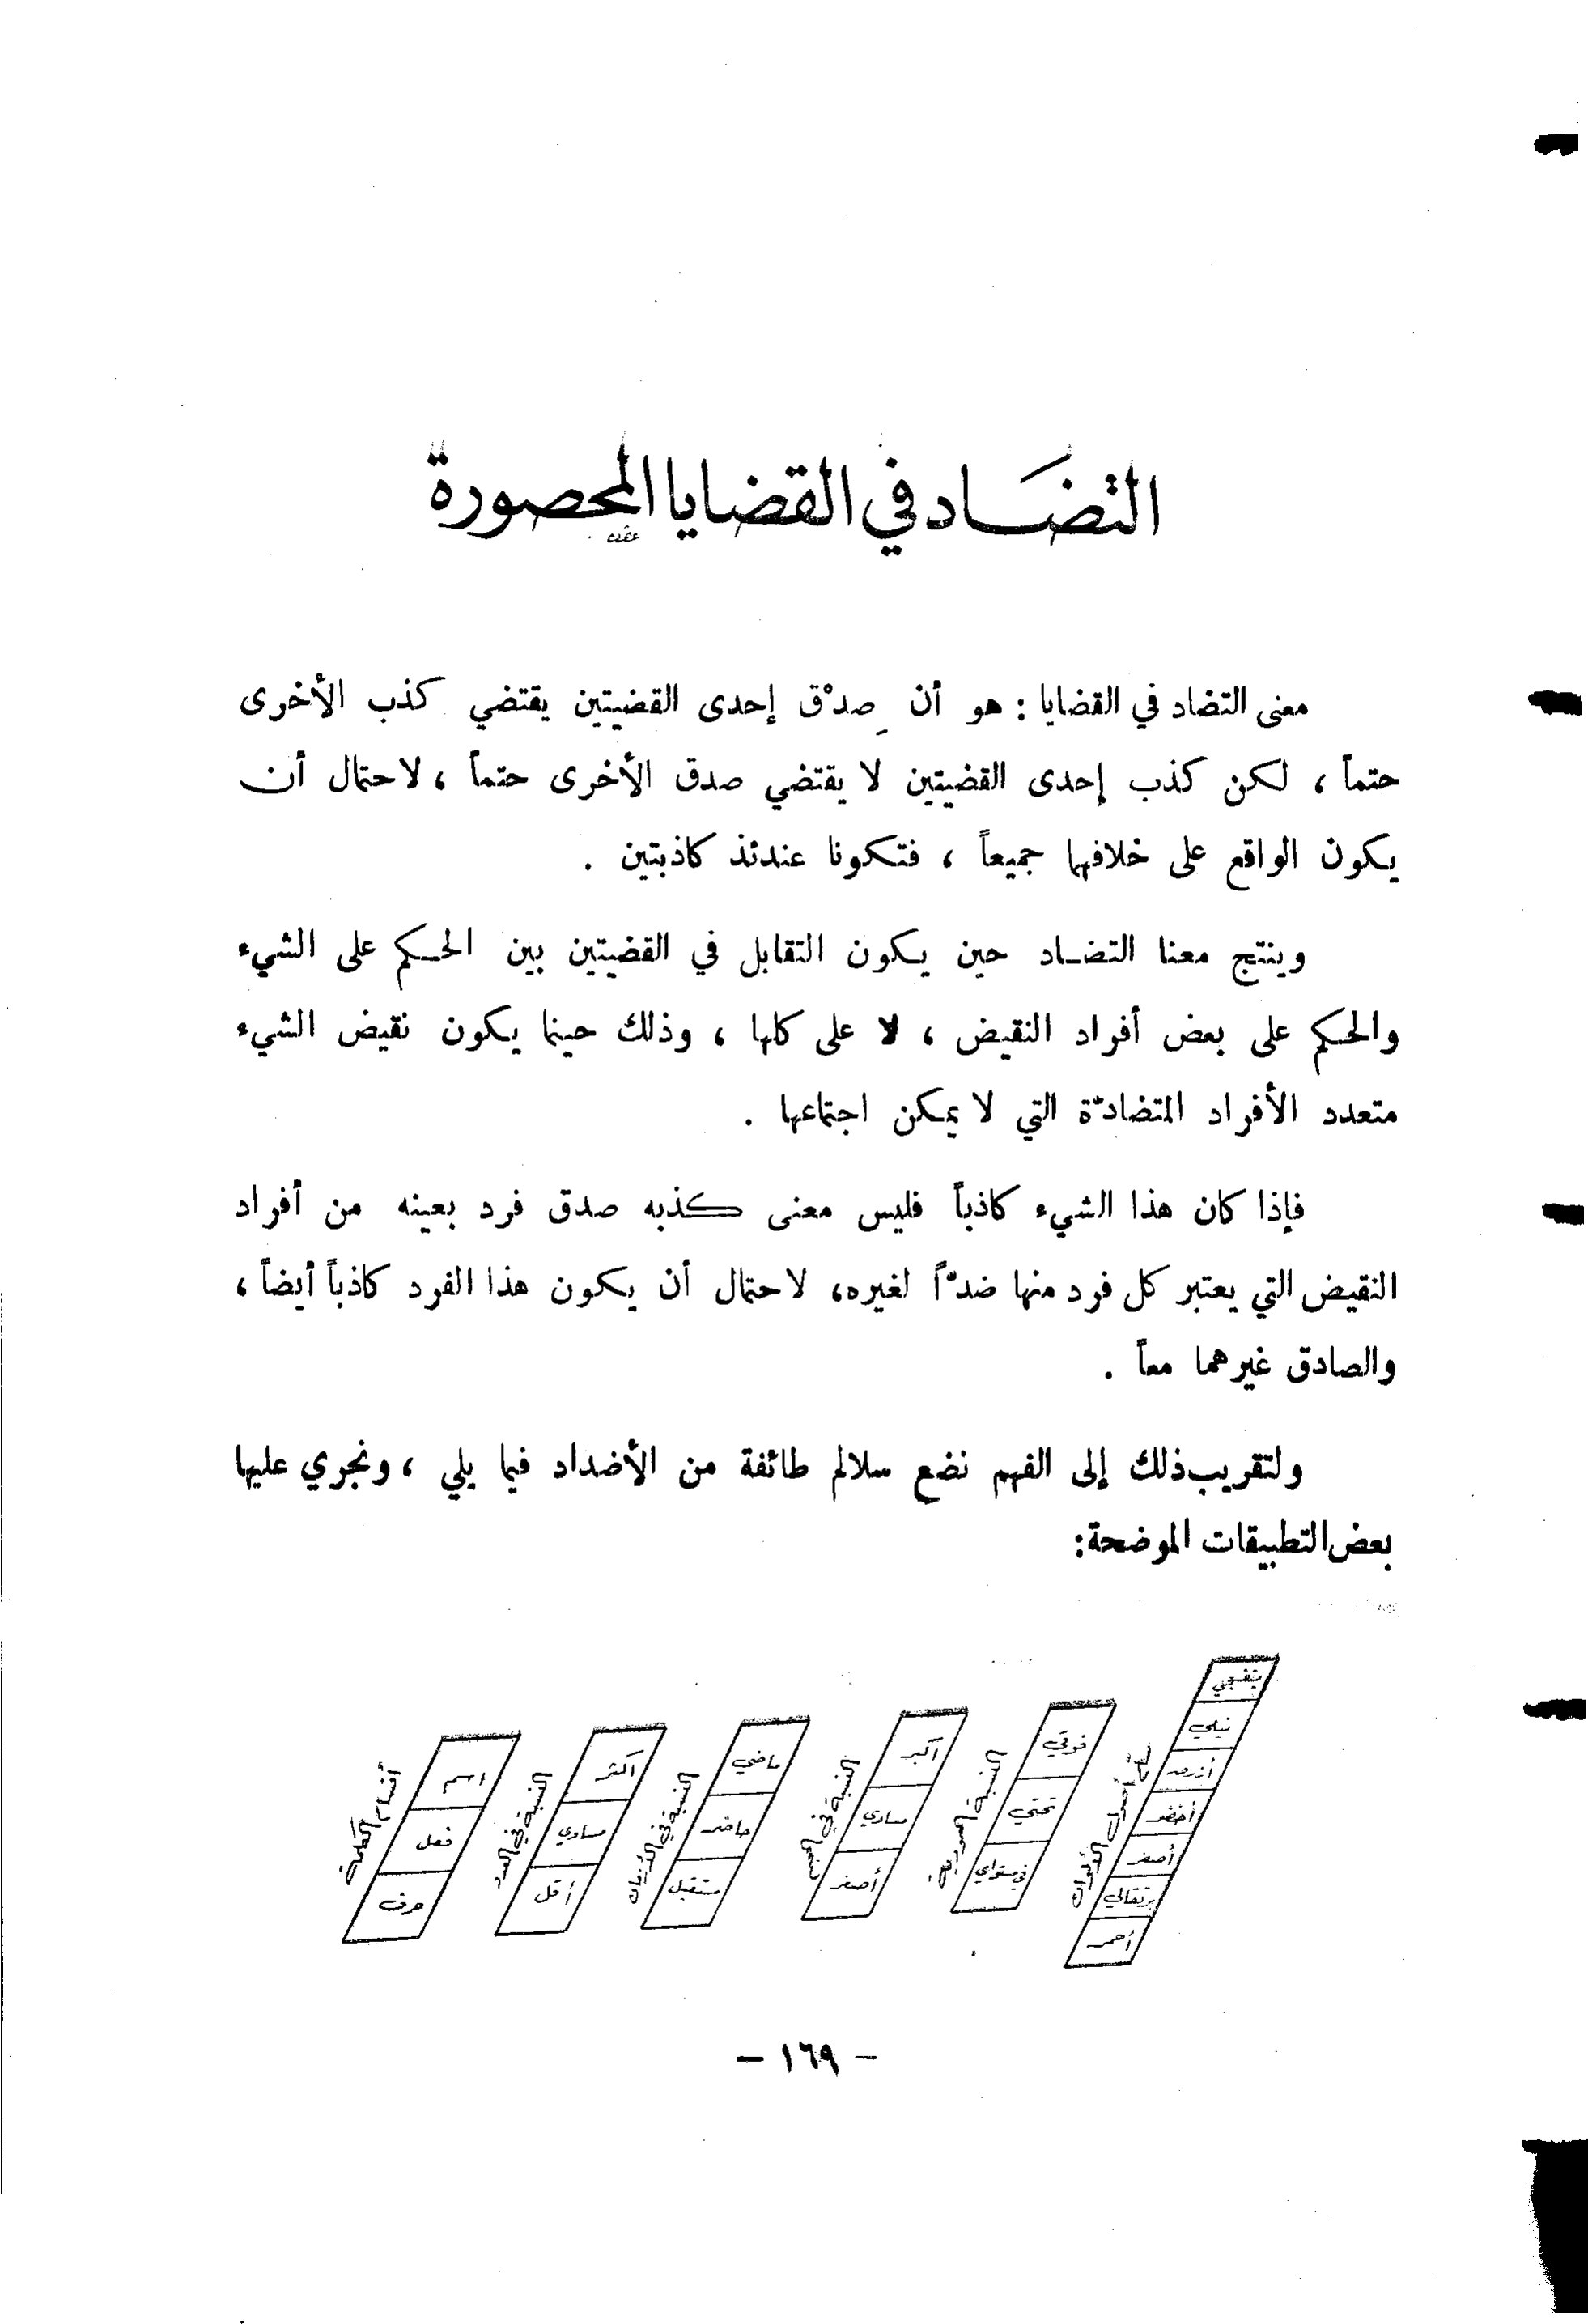 التضاد في القضايا المحصورة
معنى التضاد في القضايا : هو أن صِدْق إحدى القضيتين يقتضي كذب الأخرى
حتماً ، لكن كذب إحدى القضيتين لا يقتضي صدق الأخرى حتماً ، لاحتمال أن
يكون الواقع على خلافهما جميعاً ، فتكونا عندئذ كاذبتين .
وينتج معنا التضاد حين يكون التقابل في القضيتين بين الحكم على الشيء
والحكم على بعض أفراد النقيض ، لا على كلها ، وذلك حينما يكون نقيض الشيء
متعدد الأفراد المتضادّة التي لا يمكن اجتماعها .
فإذا كان هذا الشيء كاذباً فليس معنى كذبه صدق فرد بعينه من أفراد
النقيض التي يعتبر كل فرد منها ضدّاً لغيره، لاحتمال أن يكون هذا الفرد كاذباً أيضاً ،
والصادق غيرهما معاً .
ولتقريب ذلك إلى الفهم نضع سلالم طائفة من الأضداد فيما يلي ، ونجري عليها
بعض التطبيقات الموضحة:
بنفسجي
نيلي
أزرق
أخضر
أصفر
برتقالي
أحمر
فوقي
تحتي
في مستواي
النسبة في
أكبر
مساوي
أصغر
النسبة في الأزمان
ماضي
حاضر
مستقبل
النسبة في العدد
أكثر
مساوي
أقل
أقسام الكلمة
اسم
فعل
حرف
- ١٦٩ -